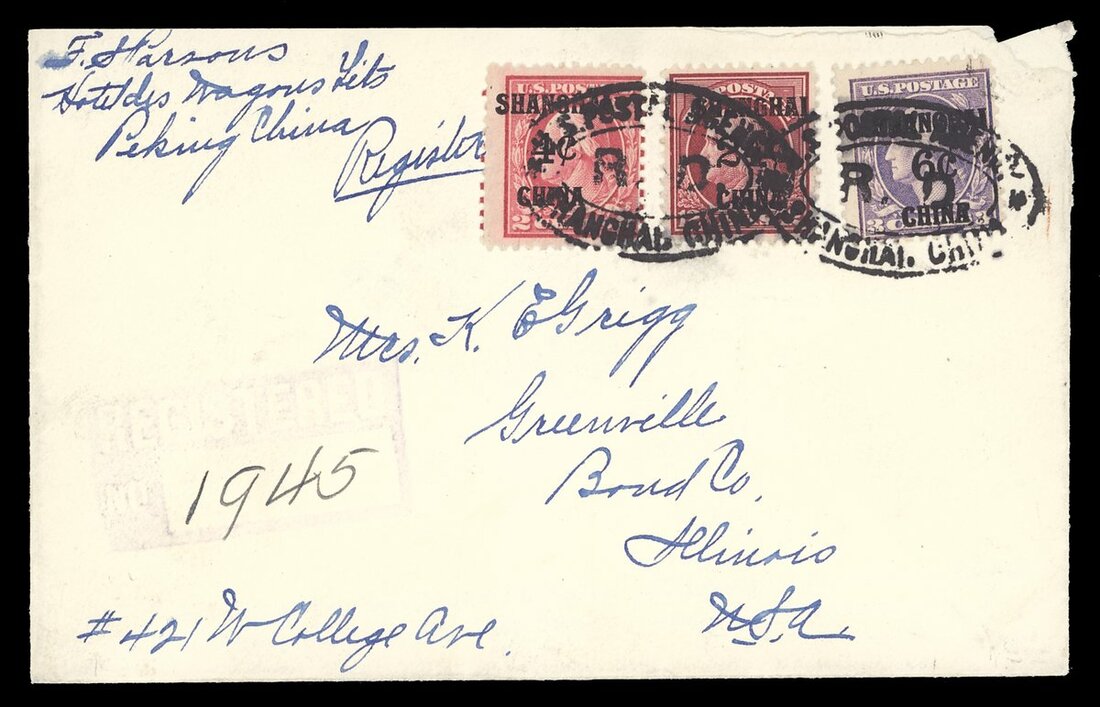 F. Parsons
Hotel des Wagons Lits
Peking China
Register
U.S. POSTAGE
SHANGHAI
4¢
CHINA
2 CENTS
U.S. POSTAGE
SHANGHAI
2¢
CHINA
U.S. POSTAGE
SHANGHAI
6¢
CHINA
3 CENTS
R. D.
SHANGHAI, CHINA
R. D.
SHANGHAI, CHINA
Mrs. K. E Grigg
Greenville
Bond Co.
Illinois
U.S.A.
REGISTERED
No.
1945
#421 W College Ave.